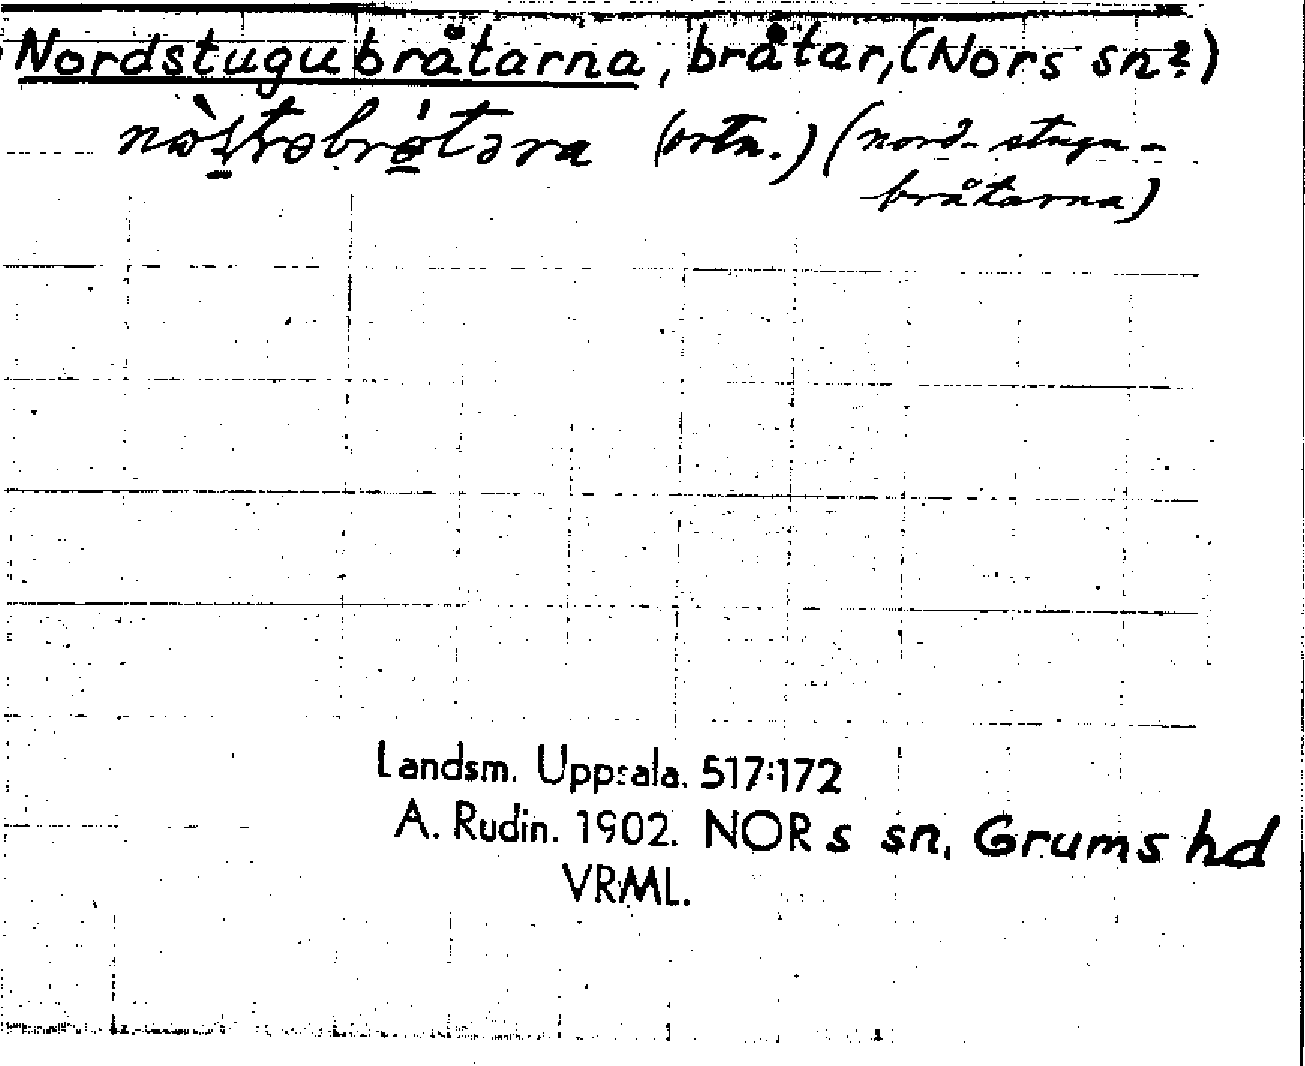 Nordstugubråtarna, bråtar, (Nors sn?)
(ortn.) (nord-stugu-
bråtarna)
Landsm. Uppsala. 517:172
A. Rudin. 1902. NORs sn, Grums hd
VRML.